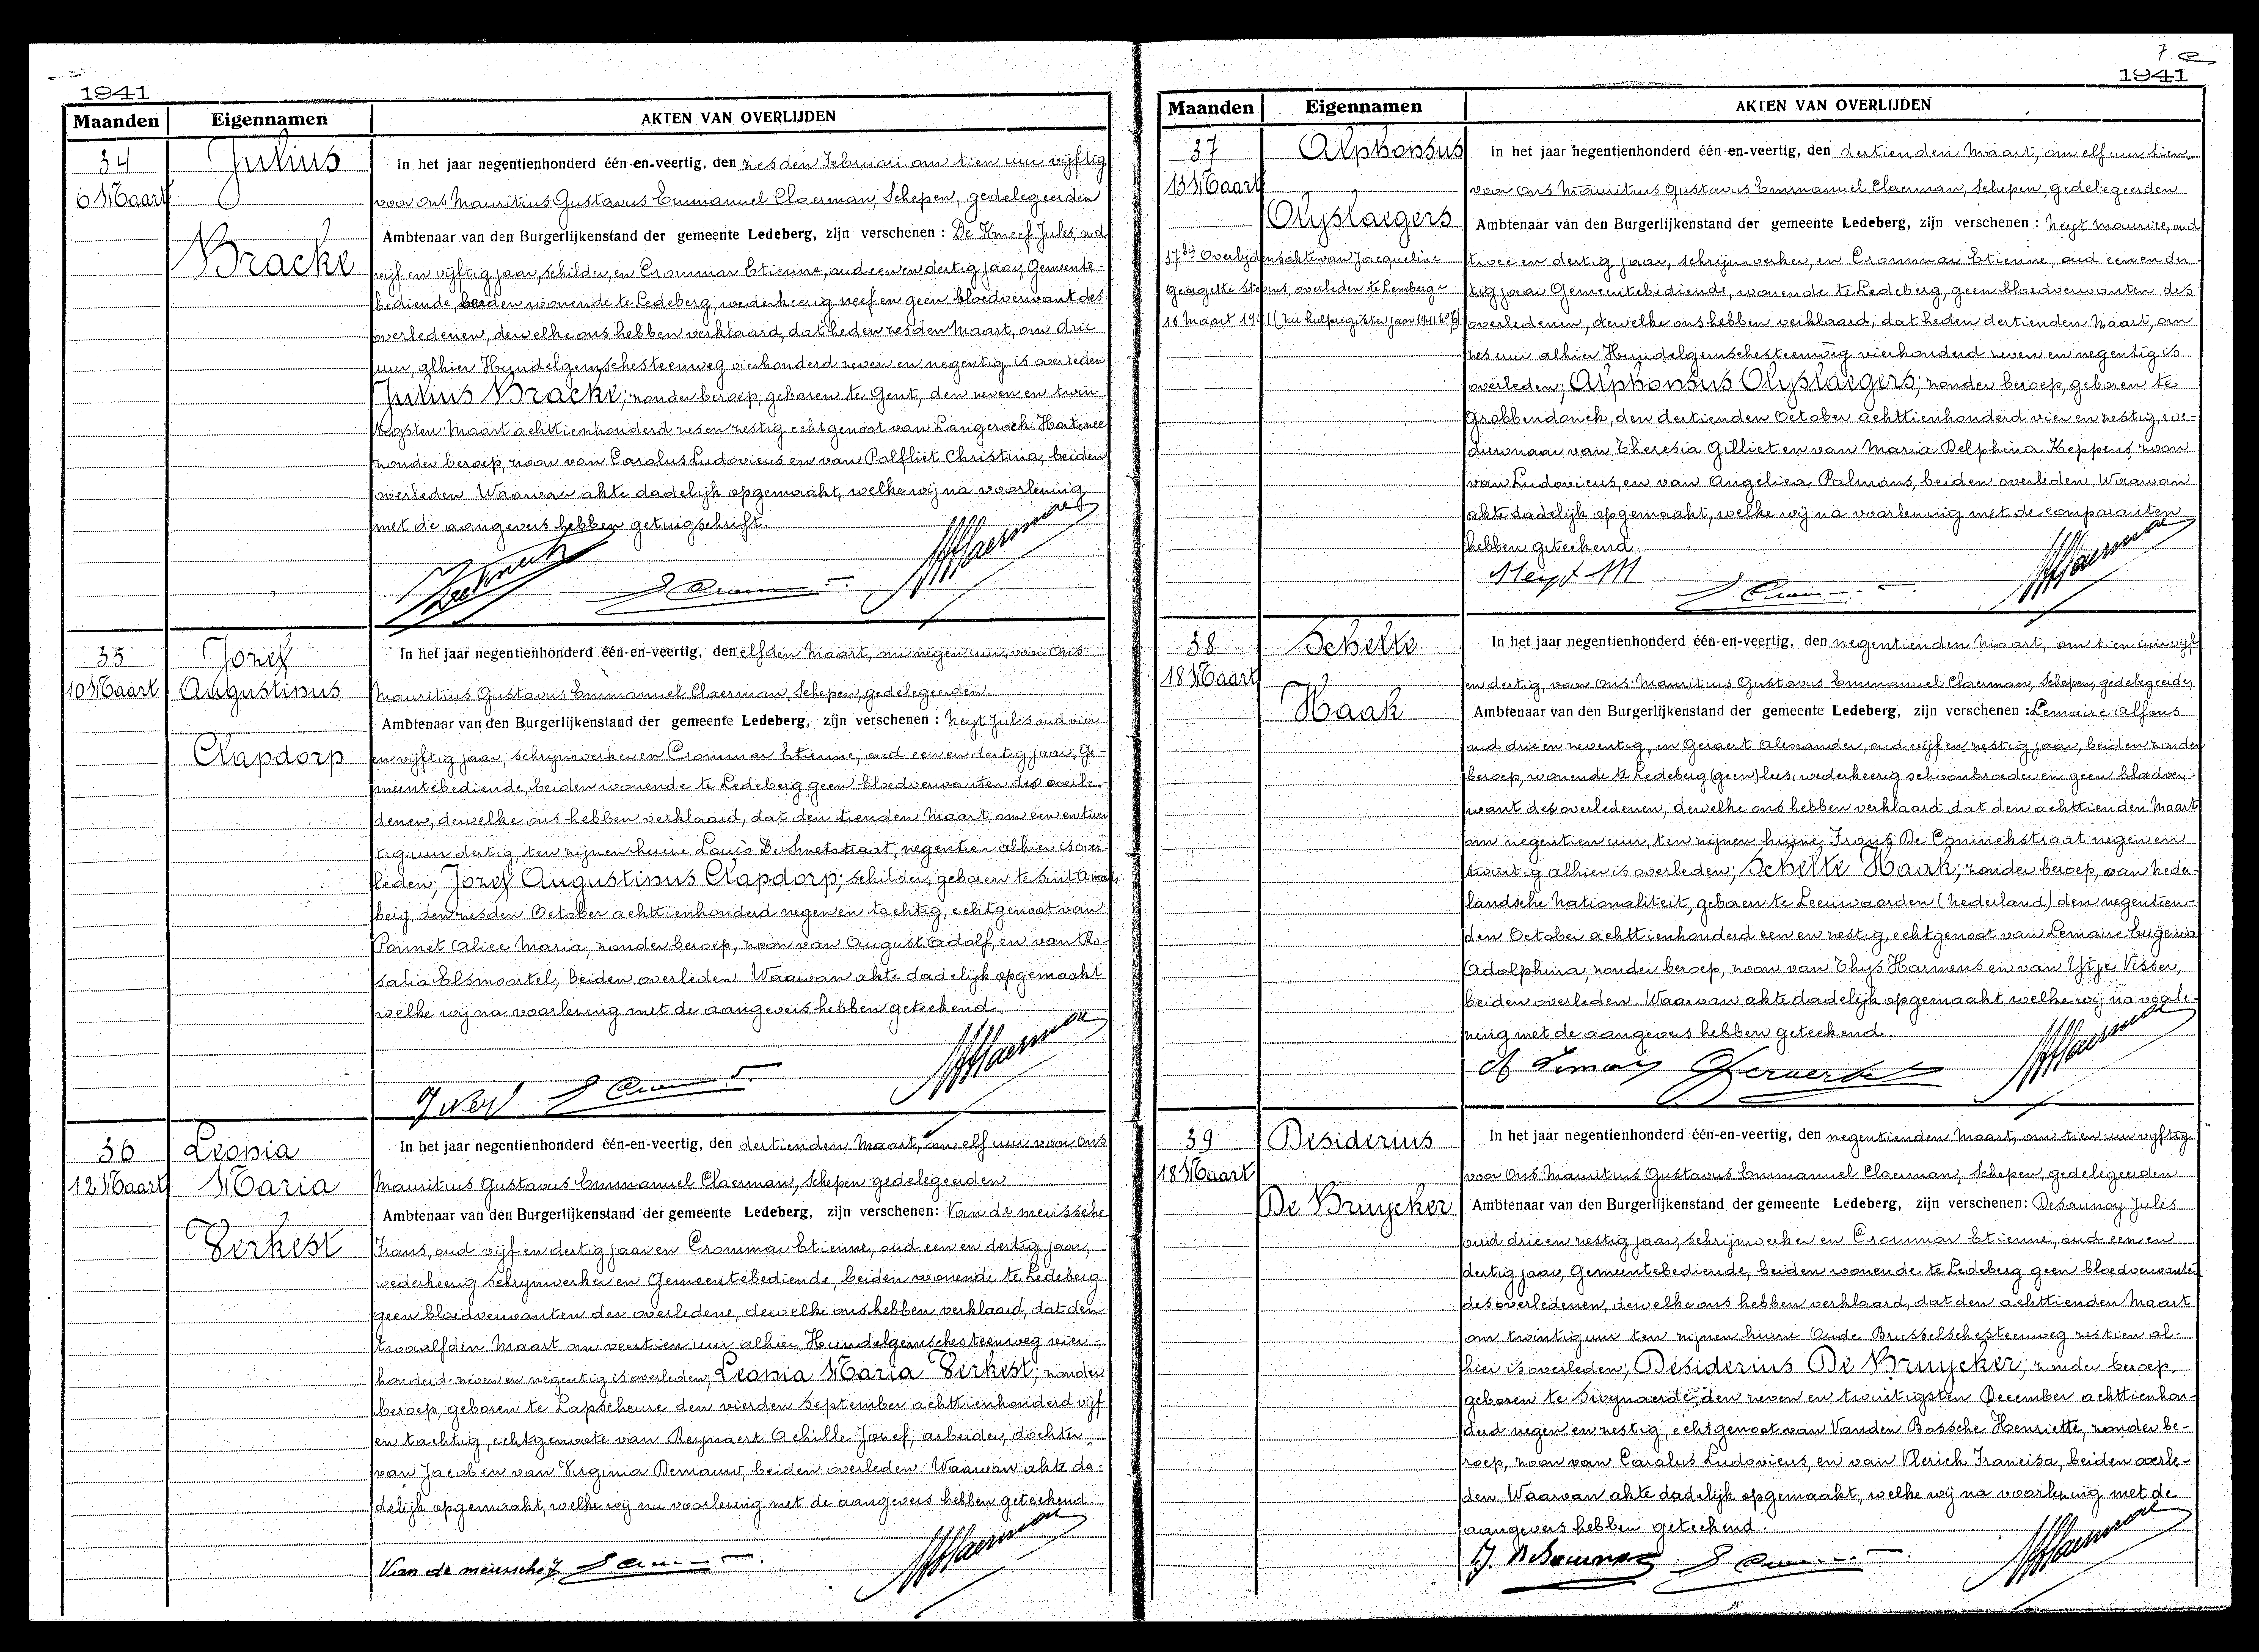 1941
Maanden Eigennamen AKTEN VAN OVERLIJDEN
34 Julius In het jaar negentienhonderd één-en-veertig, den zesden Februari om tien uur vijftig
6 Maart voor ons Mauritius Gustavus Emmanuel Claerman, Schepen, gedelegeerden
Bracke Ambtenaar van den Burgerlijkenstand der gemeente Ledeberg, zijn verschenen : De Kneef Jules, oud
vijf en vijftig jaar, schilder, en Crommar Etienne, oud een en dertig jaar, Gemeente-
bediende, beiden wonende te Ledeberg, wederkeerig neef en geen bloedverwant des
overledenen, dewelke ons hebben verklaard, dat heden zesden Maart, om drie
uur, alhier Hundelgemschesteenweg vierhonderd zeven en negentig is overleden
Julius Bracke; zonder beroep, geboren te Gent, den zeven en twin-
tigsten Maart achttienhonderd zes en zestig echtgenoot van Langerock Hortence
zonder beroep, zoon van Carolus Ludovicus en van Palfliet Christina, beiden
overleden Waarvan akte dadelijk opgemaakt, welke wij na voorlezing
met de aangevers hebben getuigschrift.
35 Jozef In het jaar negentienhonderd één-en-veertig, den elfden Maart, om negen uur, voor Ons
10 Maart Augustinus Mauritius Gustavus Emmanuel Claerman, Schepen, gedelegeerden
Ambtenaar van den Burgerlijkenstand der gemeente Ledeberg, zijn verschenen : Neyt Jules oud vier
Clapdorp en vijftig jaar, schrijnwerker en Crommar Etienne, oud een en dertig jaar, Ge-
meentebediende, beiden wonende te Ledeberg geen bloedverwanten des overle-
denen, dewelke ons hebben verklaard, dat den tienden Maart, om een en twin
tig uur dertig, ten zijnen huize Louis De Smetstraat, negentien alhier is over-
leden; Jozef Augustinus Clapdorp; schilder, geboren te Sint Amands
berg den zesden October achttienhonderd negen en tachtig, echtgenoot van
Pannet Alice Maria, zonder beroep, zoon van August Adolf, en van Ro-
salia Elsmoortel, beiden overleden Waarvan akte dadelijk opgemaakt
welke wij na voorlezing met de aangevers hebben geteekend.
36 Leonia In het jaar negentienhonderd één-en-veertig, den dertienden Maart, om elf uur voor Ons
12 Maart Maria Mauritius Gustavus Emmanuel Claerman, Schepen gedelegeerden
Ambtenaar van den Burgerlijkenstand der gemeente Ledeberg, zijn verschenen: Van de meirssche
Verkest Frans, oud vijf en dertig jaar en Crommar Etienne, oud een en dertig jaar,
wederkeerig schrijnwerker en Gemeentebediende, beiden wonende te Ledeberg
geen bloedverwanten der overledene, dewelke ons hebben verklaard, dat den
twaalfden Maart om veertien uur alhier Hundelgemschesteenweg vier-
honderd zeven en negentig is overleden; Leonia Maria Verkest; zonder
beroep, geboren te Lapscheure den vierden September achttienhonderd vijf
en tachtig, echtgenoote van Reynaert Achille Jozef, arbeider, dochter
van Jacob en van Virginia Demauw, beiden overleden. Waarvan akte da-
delijk opgemaakt, welke wij na voorlezing met de aangevers hebben geteekend.
Van de meirssche f
7
1941
Maanden Eigennamen AKTEN VAN OVERLIJDEN
37 Alphonsus In het jaar negentienhonderd één-en-veertig, den dertienden Maart, om elf uur tien,
13 Maart voor ons Mauritius Gustavus Emmanuel Claerman, Schepen, gedelegeerden
Olyslaegers Ambtenaar van den Burgerlijkenstand der gemeente Ledeberg, zijn verschenen : Neyt Maurice, oud
37bis Overlijdensakte van Jacqueline twee en dertig jaar, schrijnwerker, en Crommar Etienne, oud een en der
Georgette Stevens, overleden te Lemberge tig jaar Gemeentebediende, wonende te Ledeberg, geen bloedverwanten des
16 Maart 1941 (zie hulpregister jaar 1941 overledenen, dewelke ons hebben verklaard, dat heden dertienden Maart, om
zes uur alhier Hundelgemschesteenweg vierhonderd zeven en negentig is
overleden; Alphonsus Olyslaegers; zonder beroep, geboren te
Grobbendonck, den dertienden October achttienhonderd vier en zestig, we-
duwnaar van Theresia Gilliet en van Maria Delphina Keppens, zoon
van Ludovicus, en van Angelica Palmans, beiden overleden, Waarvan
akte dadelijk opgemaakt, welke wij na voorlezing met de comparanten
hebben geteekend.
Neyt M
38 Schelte In het jaar negentienhonderd één-en-veertig, den negentienden Maart, om tien uur vijf
18 Maart en dertig, voor Ons Mauritius Gustavus Emmanuel Claerman, Schepen, gedelegeerden
Haak Ambtenaar van den Burgerlijkenstand der gemeente Ledeberg, zijn verschenen : Lemaire Alfons
oud drie en zeventig, en Geraert Alexander, oud vijf en zestig jaar, beiden zonder
beroep, wonende te Ledeberg (geen) lees, wederkeerig schoonbroeder en geen bloedver-
want des overledenen, dewelke ons hebben verklaard dat den achttienden Maart
om negentien uur, ten zijnen huize Frans De Coninckstraat negen en
twintig alhier is overleden; Schelte Haak; zonder beroep, van Neder-
landsche Nationaliteit, geboren te Leeuwaarden (Nederland) den negentien-
den October achttienhonderd een en zestig, echtgenoot van Lemaire Eugenia
Adolphina, zonder beroep, zoon van Thys Harmens en van Ytje Visser,
beiden overleden. Waarvan akte dadelijk opgemaakt welke wij na voorle-
zing met de aangevers hebben geteekend.
39 Desiderius In het jaar negentienhonderd één-en-veertig, den negentienden Maart, om tien uur vijftig
18 Maart voor Ons Mauritius Gustavus Emmanuel Claerman, Schepen, gedelegeerden
De Bruycker Ambtenaar van den Burgerlijkenstand der gemeente Ledeberg, zijn verschenen: Desaunoy Jules
oud drie en zestig jaar, schrijnwerker en Crommar Etienne, oud een en
dertig jaar, Gemeentebediende, beiden wonende te Ledeberg geen bloedverwanten
des overledenen, dewelke ons hebben verklaard, dat den achttienden Maart
om twintig uur ten zijnen huize Oude Brusselschesteenweg zestien al-
hier is overleden; Desiderius De Bruycker; zonder beroep,
geboren te Swynaerde, den zeven en twintigsten December achttienhon-
derd negen en zestig, echtgenoot van Vanden Bossche Henriette, zonder be-
roep, zoon van Carolus Ludovicus, en van Vlerick Francisca, beiden overle-
den, Waarvan akte dadelijk opgemaakt, welke wij na voorlezing met de
aangevers hebben geteekend.